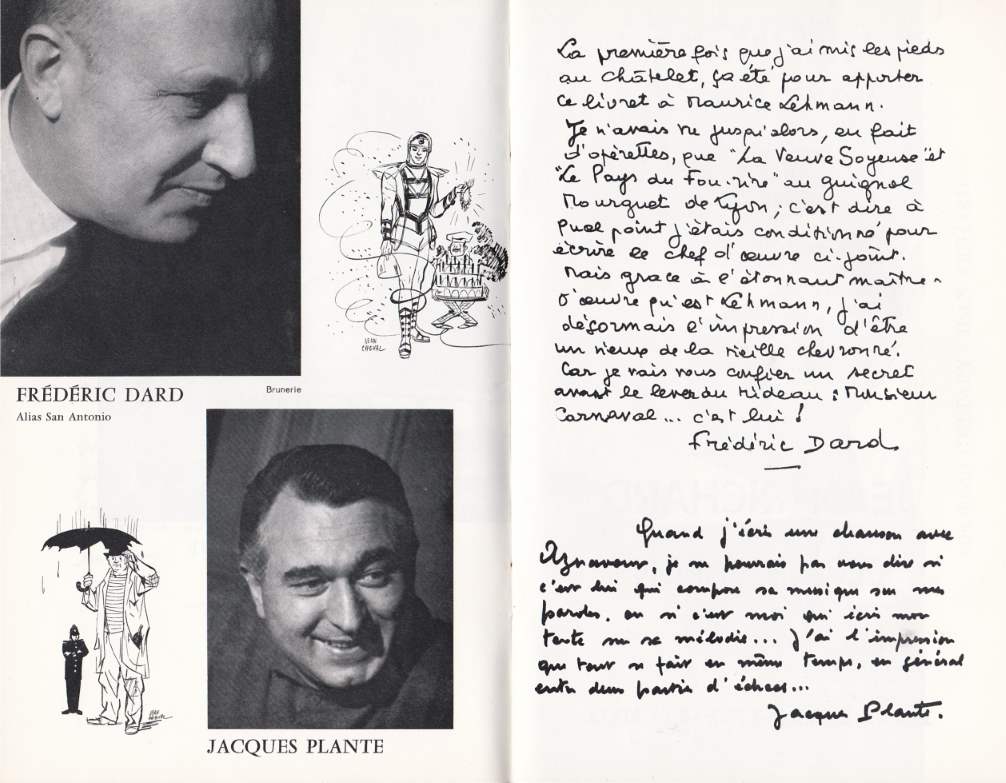 FRÉDÉRIC DARD
Brunerie
Alias San Antonio
JEAN
CHEVAL
JACQUES PLANTE
JEAN
CHEVAL
La première fois que j'ai mis les pieds
au Châtelet, ça été pour apporter
ce livret à Maurice Lehmann.
Je n'avais vu jusqu'alors, en fait
d'opérettes, que "La Veuve Soyeuse" et
"Le Pays du Fou-rire" au guignol
Mourguet de Lyon ; c'est dire à
quel point j'étais conditionné pour
écrire le chef d'œuvre ci-joint.
Mais grace à l'étonnant maître-
d'œuvre qu'est Lehmann, j'ai
désormais l'impression d'être
un vieux de la vieille chevronné.
Car je vais vous confier un secret
avant le lever du rideau : Monsieur
Carnaval... c'est lui !
Frédéric Dard
Quand j'écris une chanson avec
Aznavour, je ne pourrais pas vous dire si
c'est lui qui compose sa musique sur mes
paroles, ou si c'est moi qui écris mon
texte sur sa mélodie... J'ai l'impression
que tout se fait en même temps, en général
entre deux parties d'échecs...
Jacques Plante.